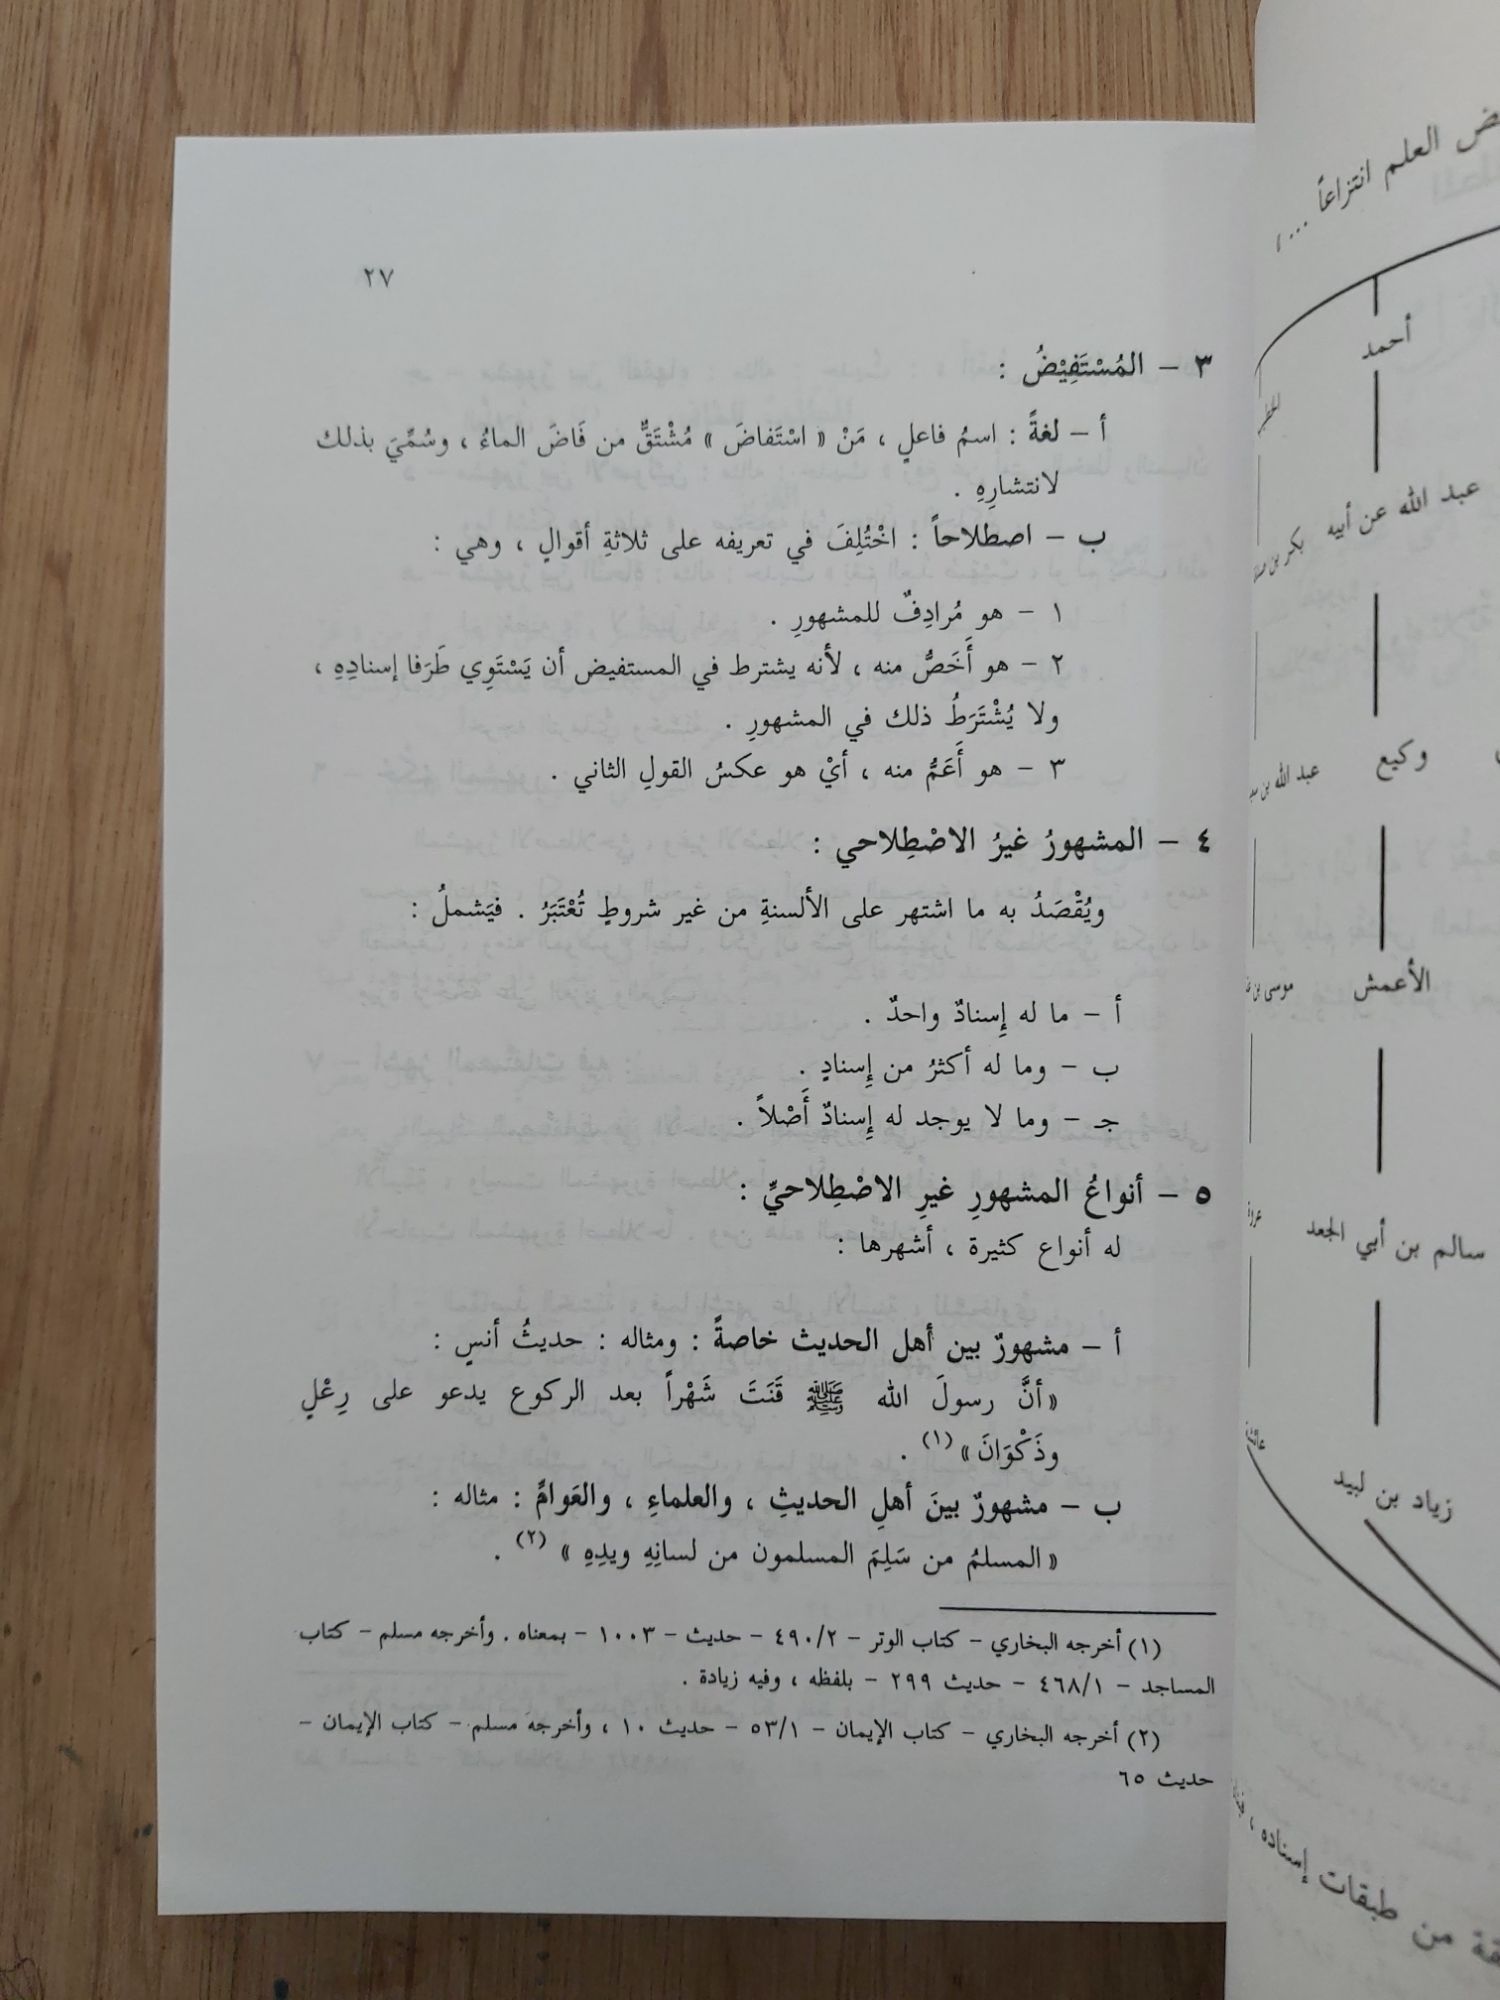 ٢٧
٣ – المُسْتَفِيْضُ :
أ – لغةً : اسمُ فاعلٍ ، مَنْ « اسْتَفاضَ » مُشْتَقٌّ من فَاضَ الماءُ ، وسُمِّيَ بذلك
لانتشارِهِ .
ب – اصطلاحاً : اخْتُلِفَ في تعريفه على ثلاثةِ أقوالٍ ، وهي :
١ – هو مُرادِفٌ للمشهورِ .
٢ – هو أَخَصُّ منه ، لأنه يشترط في المستفيض أن يَسْتَوِي طَرَفا إسنادِهِ ،
ولا يُشْتَرَطُ ذلك في المشهورِ .
٣ – هو أَعَمُّ منه ، أيْ هو عكسُ القولِ الثاني .
٤ – المشهورُ غيرُ الاصْطِلاحي :
ويُقْصَدُ به ما اشتهر على الألسنةِ من غير شروطٍ تُعْتَبَرُ . فيَشملُ :
أ – ما له إِسنادٌ واحدٌ .
ب – وما له أكثرُ من إِسنادٍ .
جـ – وما لا يوجد له إِسنادٌ أَصْلاً .
٥ – أنواعُ المشهورِ غيرِ الاصْطِلاحيِّ :
له أنواع كثيرة ، أشهرها :
أ – مشهورٌ بين أهل الحديث خاصةً : ومثاله : حديثُ أنسٍ :
« أنَّ رسولَ الله ﷺ قَنَتَ شَهْراً بعد الركوع يدعو على رِعْلٍ
وذَكْوَانَ » (١) .
ب – مشهورٌ بينَ أهلِ الحديثِ ، والعلماءِ ، والعَوامِّ : مثاله :
« المسلمُ من سَلِمَ المسلمون من لسانِهِ ويدِهِ » (٢) .
(١) أخرجه البخاري – كتاب الوتر – ٤٩٠/٢ – حديث – ١٠٠٣ – بمعناه . وأخرجه مسلم – كتاب
المساجد – ٤٦٨/١ – حديث ٢٩٩ – بلفظه ، وفيه زيادة .
(٢) أخرجه البخاري – كتاب الإيمان – ٥٣/١ – حديث ١٠ ، وأخرجه مسلم – كتاب الإيمان –
حديث ٦٥
العلم انتزاعاً ...
أحمد
عبد الله عن أبيه
بكر بن
وكيع
عبد الله بن
الأعمش
موسى بن
سالم بن أبي الجعد
زياد بن لبيد
من طبقات إسناده ،